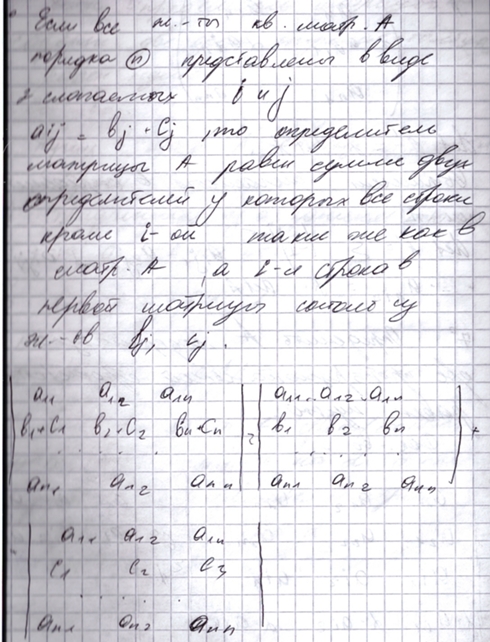 Если все эл.-ты кв. матр. A
порядка n представлены в виде
2 слагаемых i и j
aij = bj + cj, то определитель
матрицы A равен сумме двух
определителей у которых все строки
кроме i-ой такие же как в
матр. A, а i-я строка в
первой матрицы состоит из
эл.-ов bj, cj.
a11 a12 a1n a11 . a12 . a1n
b1+c1 b2+c2 bn+cn = b1 b2 bn +
. . . . . . . . . .
an1 an2 ann an1 an2 ann
a11 a12 a1n
c1 c2 cn
. . . . .
an1 an2 ann